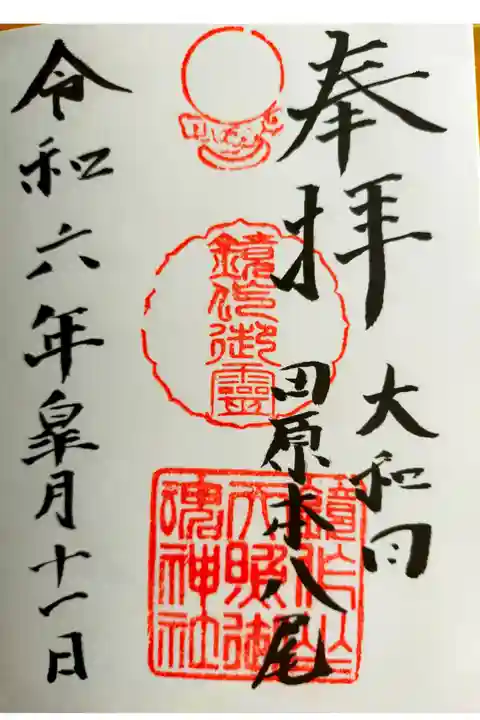 奉拝
大和国
田原本八尾
鏡作御靈
鏡作坐
天照御
魂神社
令和六年皐月十一日